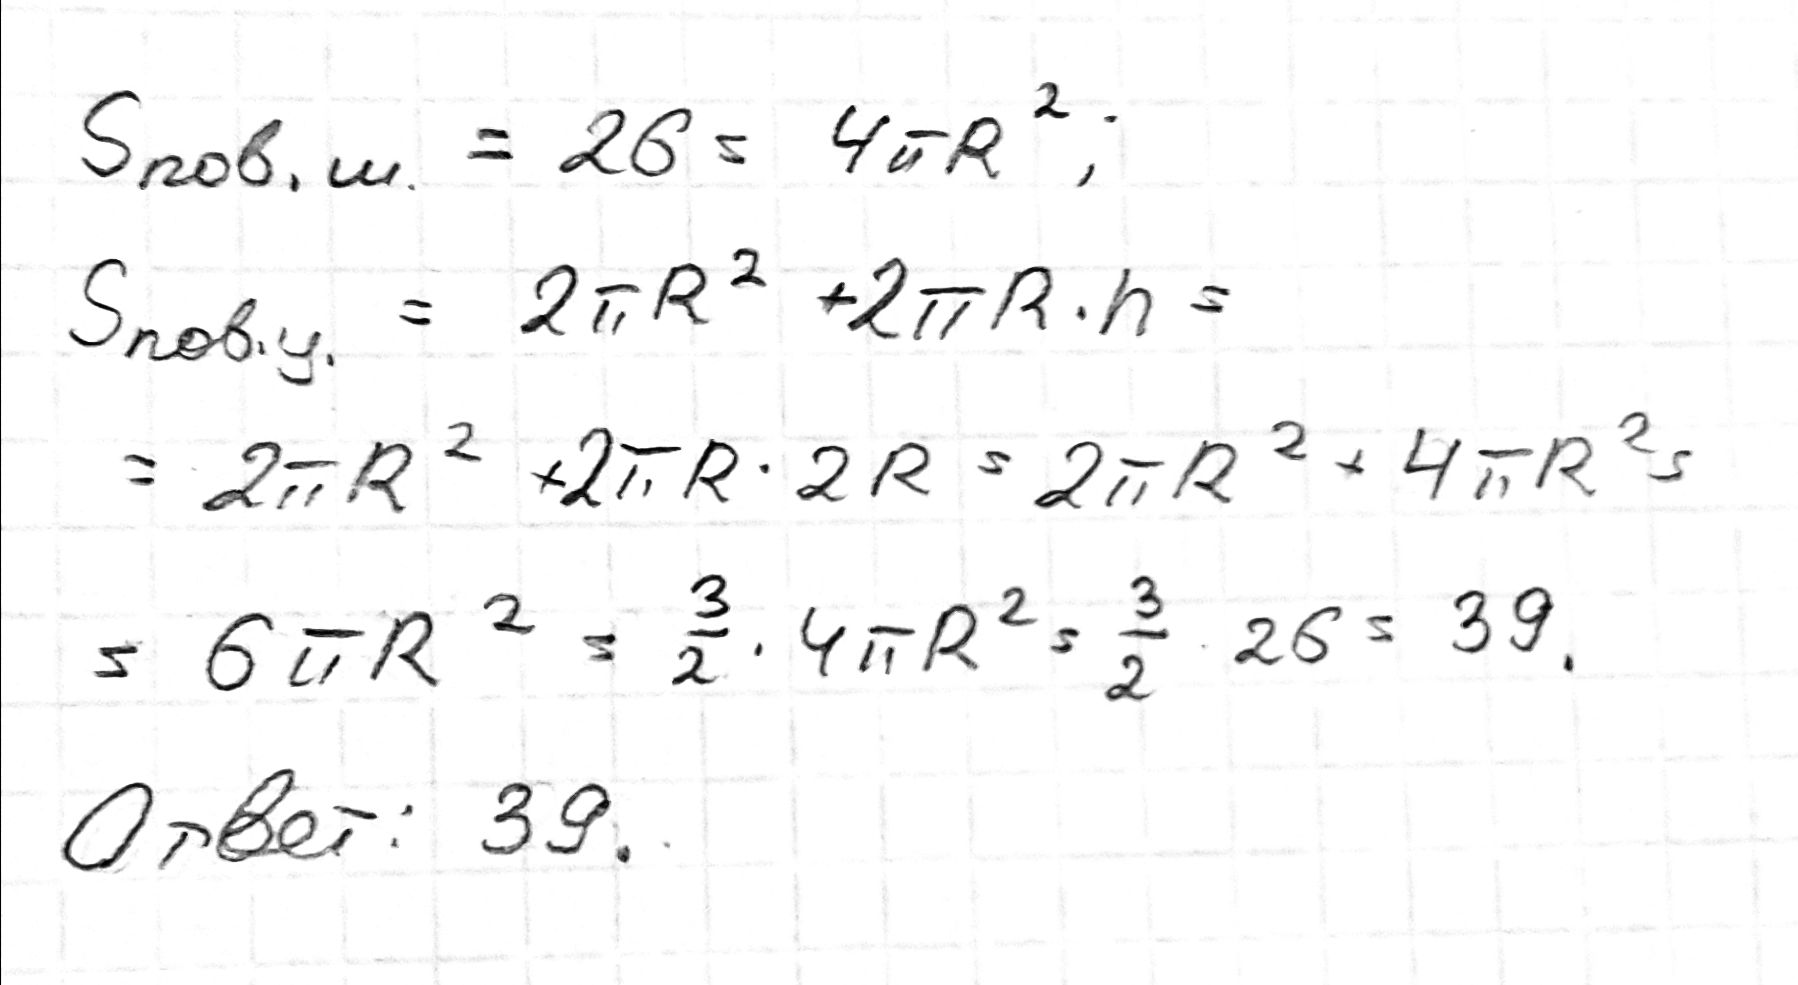 Sпов. ш. = 26 = 4πR²;
Sпов.ц. = 2πR² + 2πR·h =
= 2πR² + 2πR·2R = 2πR² + 4πR² =
= 6πR² = 3/2 · 4πR² = 3/2 · 26 = 39.
Ответ: 39.